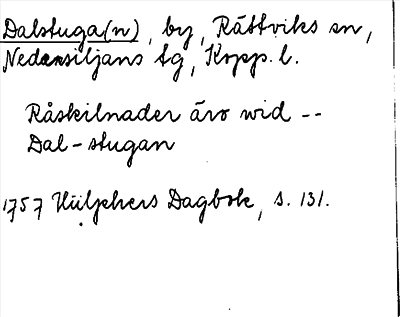 Dalstuga(n), by, Rättviks sn,
Nedansiljans tg, Kopp. l.
Råskilnader äro wid --
Dal-stugan
1757 Hülphers Dagbok, s. 131.